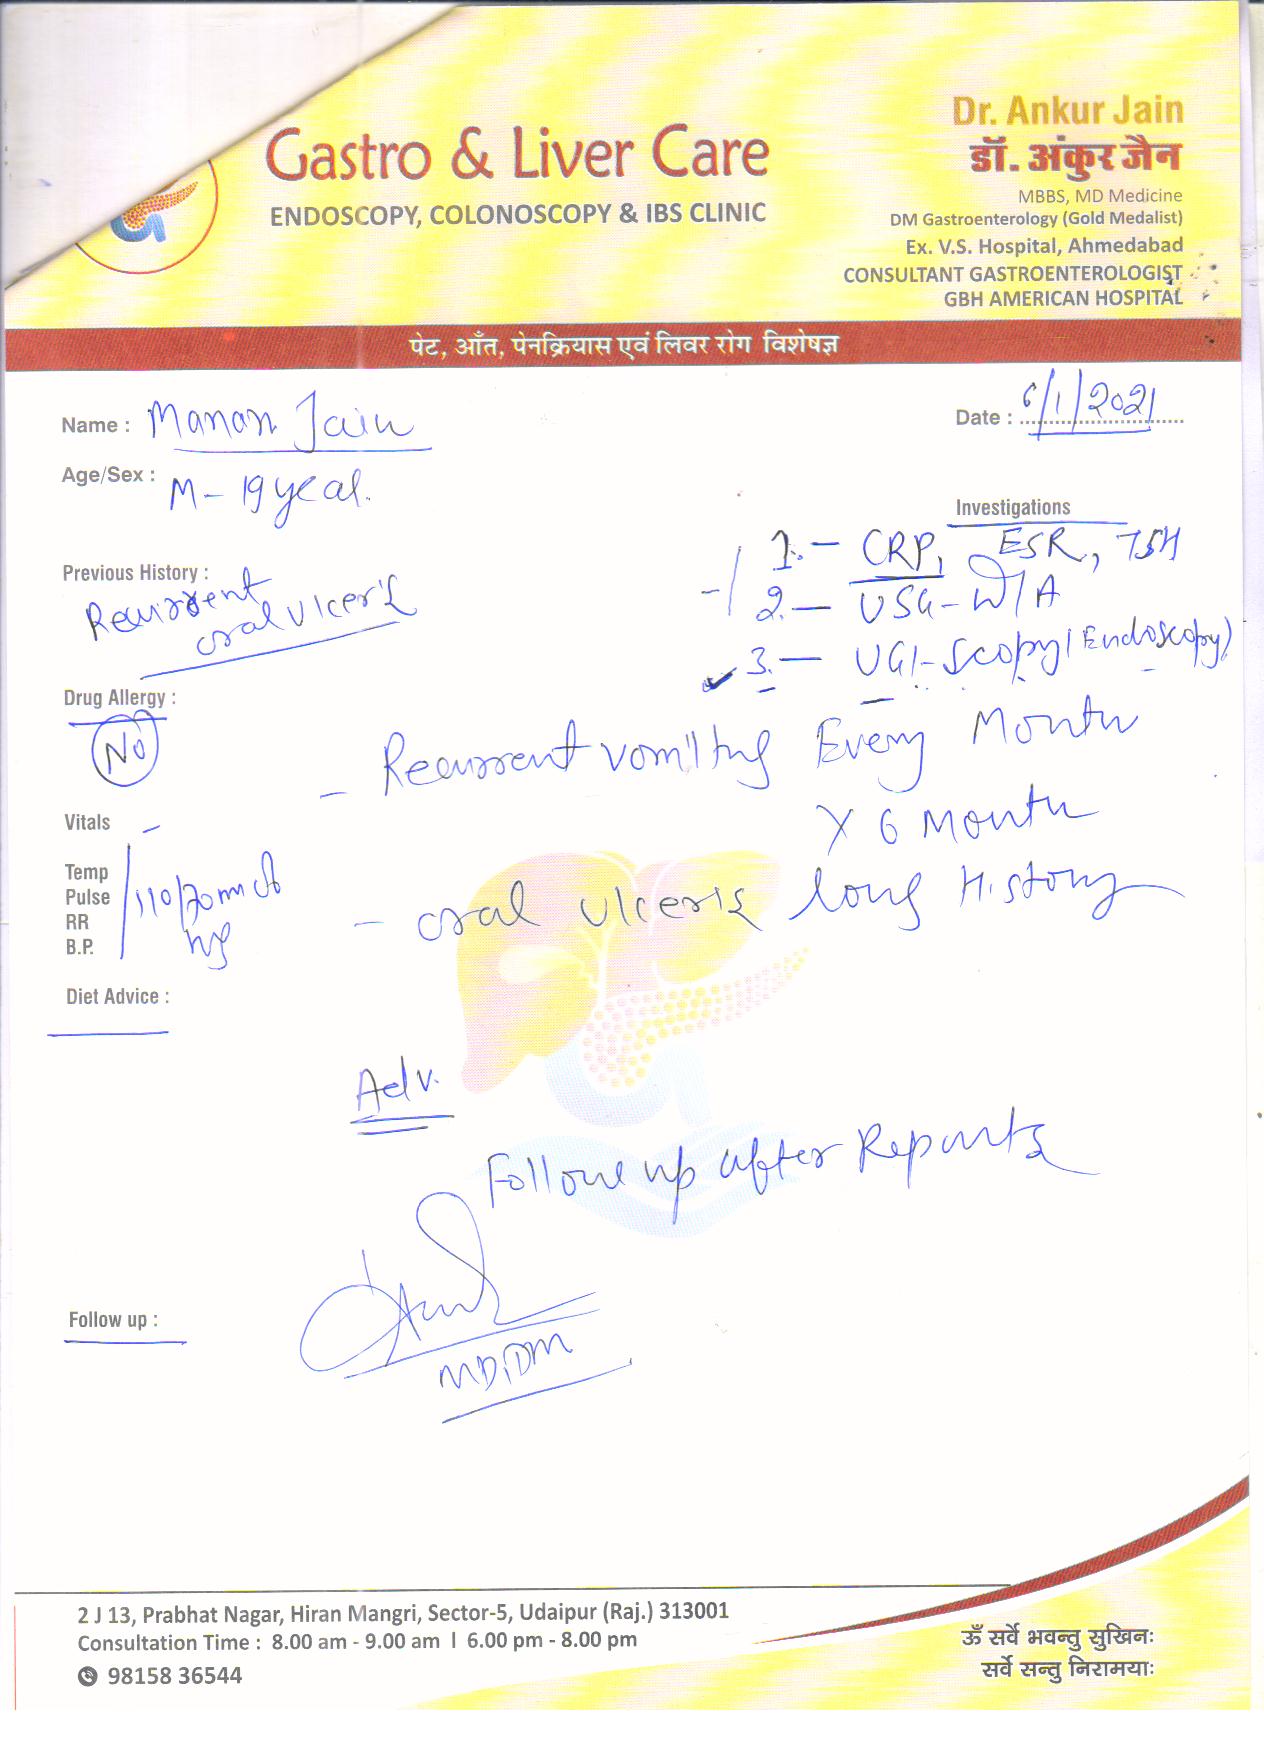 Gastro & Liver Care
ENDOSCOPY, COLONOSCOPY & IBS CLINIC
Dr. Ankur Jain
डॉ. अंकुर जैन
MBBS, MD Medicine
DM Gastroenterology (Gold Medalist)
Ex. V.S. Hospital, Ahmedabad
CONSULTANT GASTROENTEROLOGIST
GBH AMERICAN HOSPITAL
पेट, आँत, पेनक्रियास एवं लिवर रोग विशेषज्ञ
Name : Manan Jain
Date : 6/1/2021
Age/Sex : M - 19 year.
Investigations
1. - CRP, ESR, TSH
2. - USG - W/A
3. - UGI-Scopy (Endoscopy)
Previous History :
Recurrent
oral ulcer's
Drug Allergy :
NO
- Recurrent vomiting Every Month
X 6 Month
- oral ulcers long History
Vitals -
Temp
Pulse
RR
B.P.
110/70 mm of
hg
Diet Advice :
Adv.
Follow up after Reports
MD, DM
Follow up :
2 J 13, Prabhat Nagar, Hiran Mangri, Sector-5, Udaipur (Raj.) 313001
Consultation Time : 8.00 am - 9.00 am I 6.00 pm - 8.00 pm
98158 36544
ॐ सर्वे भवन्तु सुखिनः
सर्वे सन्तु निरामयाः